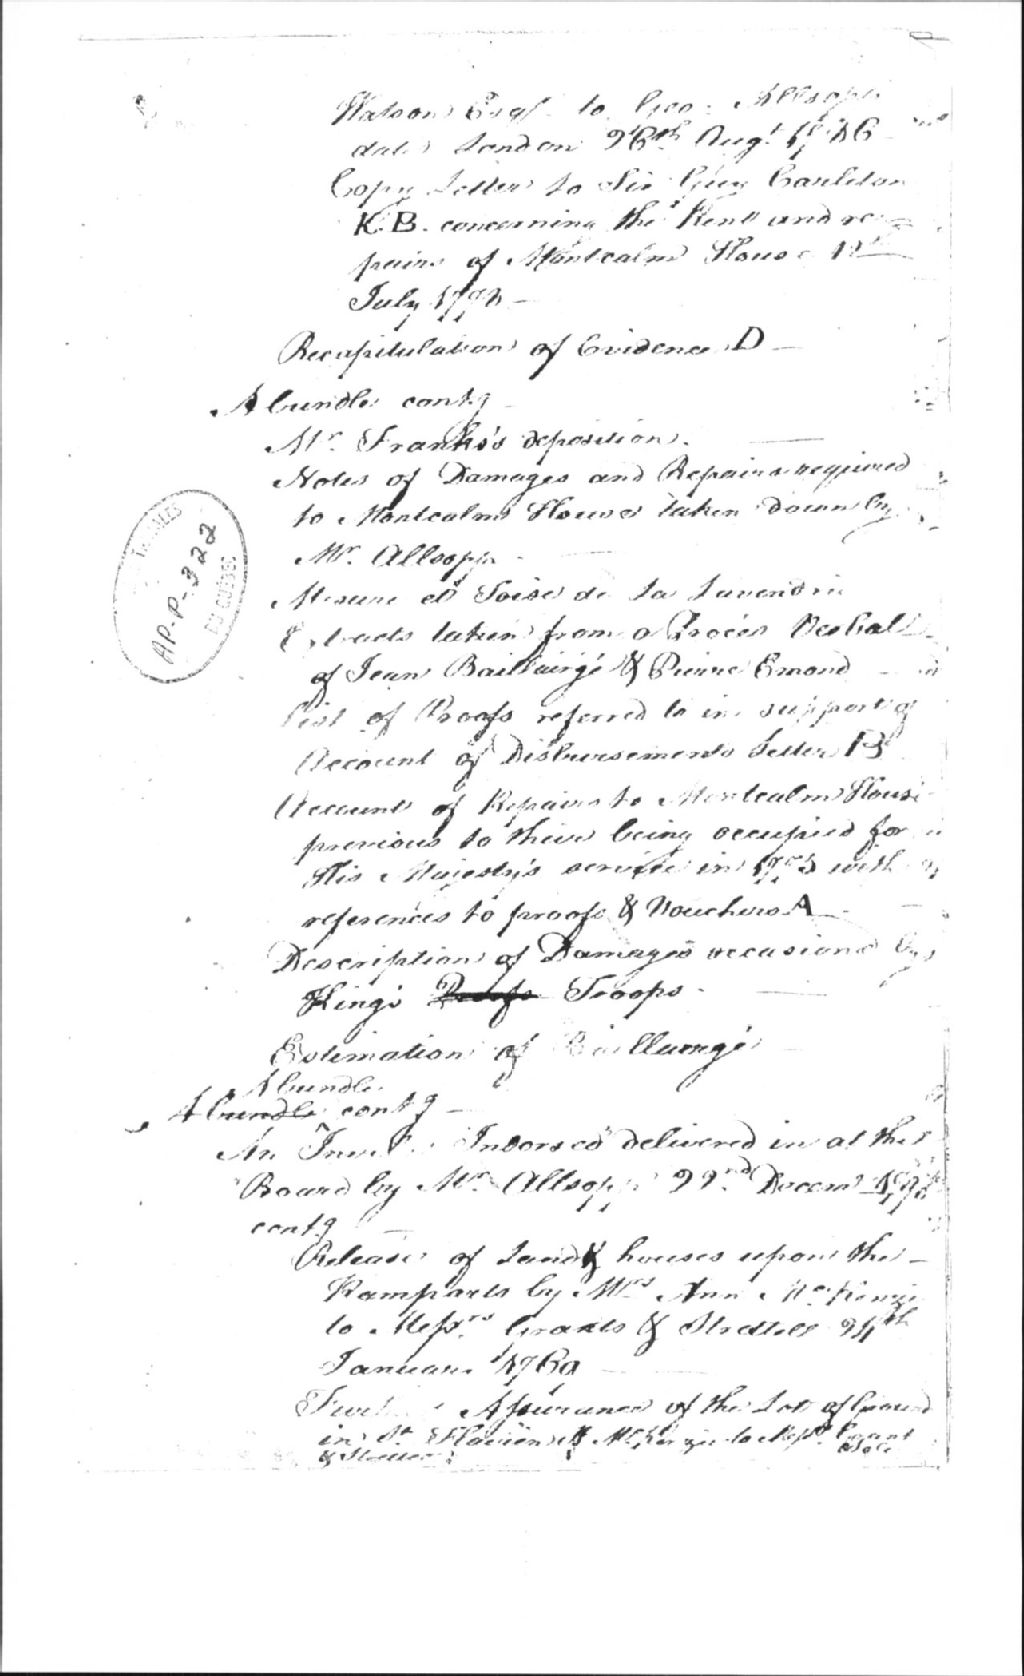 Watson Esqr. to Geo: Allsopp
dated London 26th Augt. 1786
Copy Letter to Sir Guy Carleton
K.B. concerning the Rent and re-
pairs of Montcalm House 12th
July 1778 —
Recapitulation of Evidence D —
A bundle contg —
Mr. Franks's deposition. —
Notes of Damages and Repairs required
to Montcalm House taken down by
Mr. Allsopp
Mesure et Toisé de La
Extracts taken from a Procès Verbal
of Jean Baillairgé & Pierre Emond —
List of Proofs referred to in support of
Account of Disbursements Letter B
Account of Repairs to Montcalm House
previous to their being occupied for
His Majesty's service in 1775 with
references to proofs & Vouchers A —
Description of Damages occasioned by
Kings Proofs Troops —
Estimation of Baillairgé —
A bundle
A bundle contg —
An Indorsed delivered in at the
Board by Mr. Allsopp 22nd Decem
contg —
Release of Land & houses upon the —
Ramparts by Mrs Ann McKenzie
to Messrs. Grants & Strettell 24th
January 1769 —
Further Assurance of the Lot of Ground
in St. McKenzie to Messrs. Grant
&
AP-P-322
DU QUÉBEC